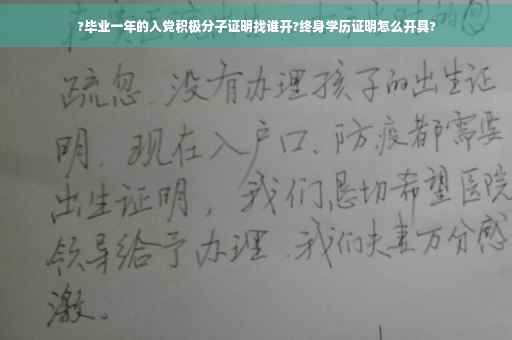 ?毕业一年的入党积极分子证明找谁开?终身学历证明怎么开具?
疏忽、没有办理孩子的出生证
明、现在入户口、防疫都需要
出生证明,我们恳切希望医院
领导给予办理、我们夫妻万分感
激。